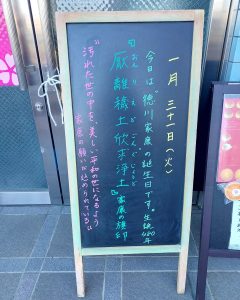 一月三十一日(火)
今日は“徳川家康”の誕生日です。生誕480年
おんりえどごんぐじょうど
『厭離穢土欣求浄土』家康の旗印
“汚れた世の中を、美しい平和の世になるよう
家康の願いが込められている”